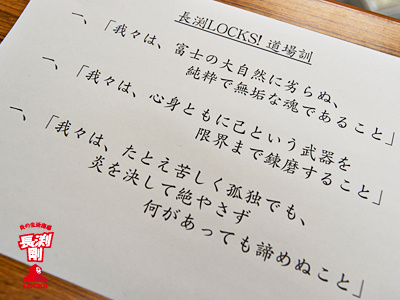 長渕LOCKS! 道場訓
一、「我々は、富士の大自然に劣らぬ、
純粋で無垢な魂であること」
一、「我々は、心身ともに己という武器を
限界まで錬磨すること」
一、「我々は、たとえ苦しく孤独でも、
炎を決して絶やさず
何があっても諦めぬこと」
長渕
剛